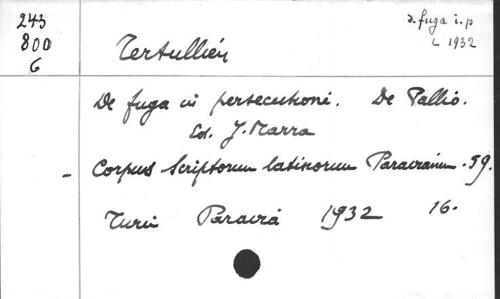 243
800
6
d. fuga i. p
c 1932
Tertullien
De fuga in persecutioni. De Pallio.
Ed. J. Marra
- Corpus Scriptorum latinorum Paravianum. 59.
Turin Paravia 1932 16.